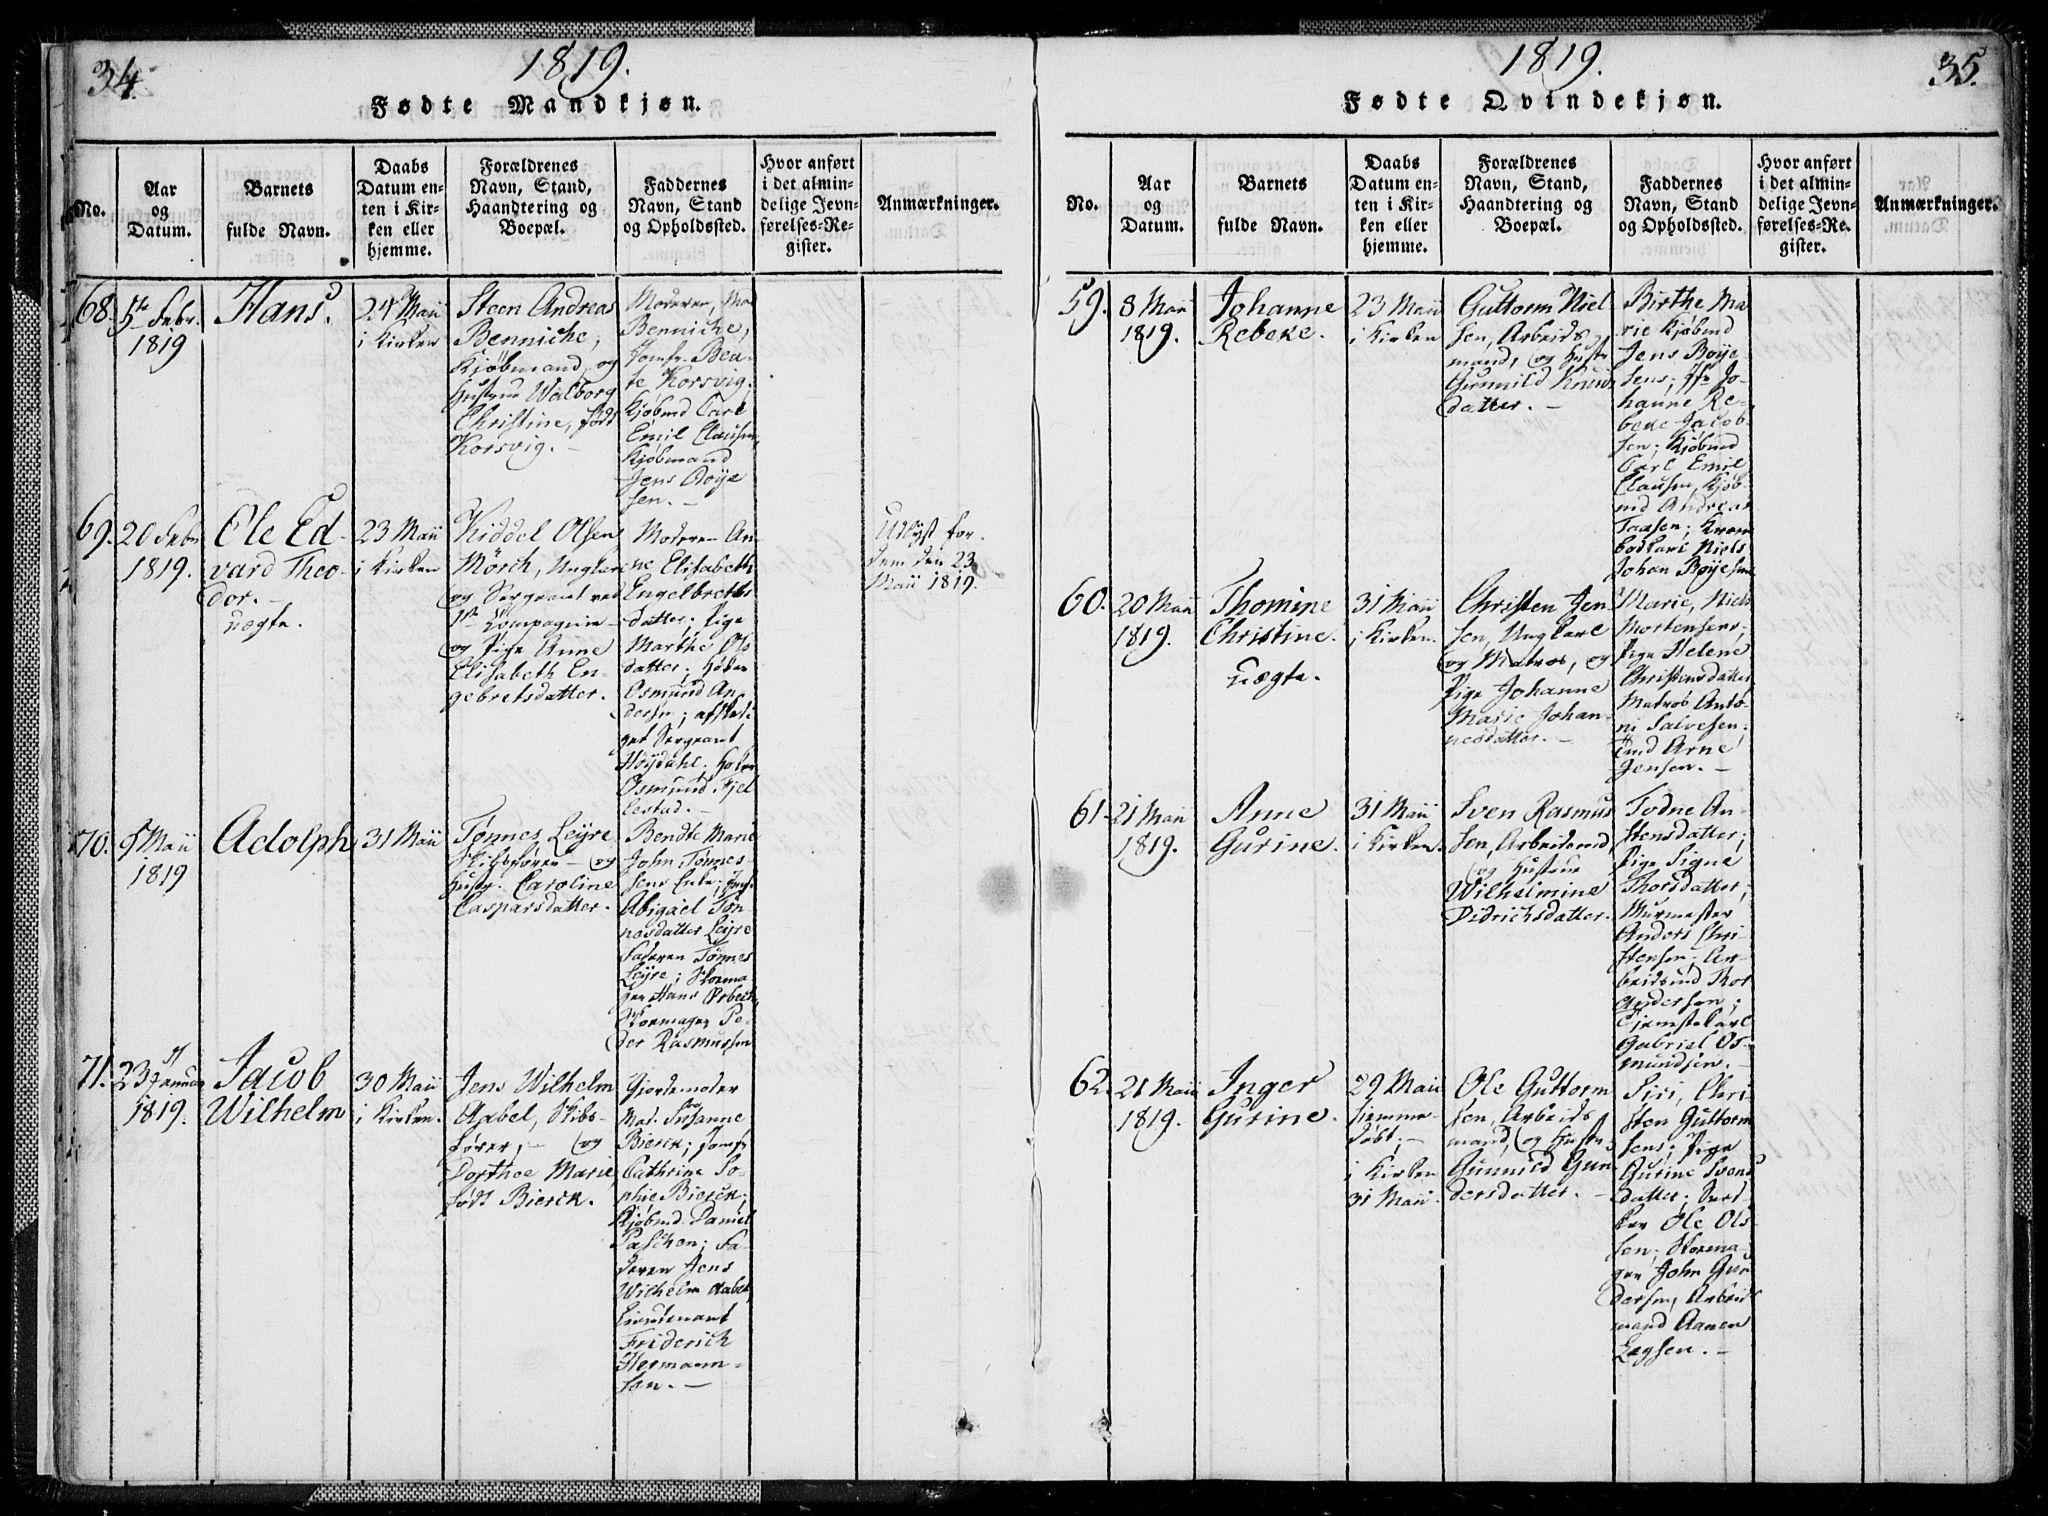 34.
1819.
Fødte Mandkjøn.
No.
Aar
og
Datum.
Barnets
fulde Navn.
Daabs
Datum en-
ten i Kir-
ken eller
hjemme.
Forældrenes
Navn, Stand,
Haandtering og
Boepæl.
Faddernes
Navn, Stand
og Opholdssted.
Hvor anført
i det almin-
delige Jevn-
førelses-Re-
gister.
Anmærkninger.
68.
5te Febr.
1819
Hans.
24 Maii
i Kirken
Steen Andreas
Benniche,
Kjøbmand, og
Hustrue Walborg
Christine, født
Korsvig.
Moderen, Mad
Benniche,
Jomfr. Bea-
te Korsvig,
Kjøbmd Carl
Emil Clausen,
Kjøbmand
Jens Boye
sen. -
69.
20 Febr
1819.
Ole Ed-
vard Theo-
dor. -
uægte.
23 Maii
i Kirken
Kiddel Olsen
Mörch, Ungkarl
og Sergeant ved
1ste Kompagnie -
og Pige Anne
Elisabeth En-
gebretsdatter.
Moderen An-
ne Elisabeth
Engelbreths
datter; Pige
Marthe Ols
datter;
Osmund An-
dersen; afskedi-
get Sergeant
Höydahl.
Osmund Fjel
lestad. -
Udlyst for
dem den 23
Maii 1819.
70.
5 Maii
1819
Adolph
31 Maii
Tønnes Leyre
Skibsfører - og
Hustr. Caroline
Caspersdatter.
Bendte Marie
John Tønnes-
sens Enke;
Abigael Tön-
nesdatter Leyre
Faderen Tønnes
Leyre; Skoema
ger Hans Orbech,
Skoemager Pe-
der Rasmussen
71.
23 Januar
1819.
Jacob
Wilhelm
30 Maii
i Kirken.
Jens Wilhelm
Aabel, Skibs-
fører, - og
Dorthee Marie
født Bierck.
Giordemoder
Mad. Susanne
Bierck; Jomfr
Cathrine So-
phie Bierck.
Kjöbmd. Daniel
Paschen; Fa-
deren Jens
Wilhelm Aabel,
Lieutenant
Friderich
Hermann-
sen. -
35.
1819.
Fødte Qvindekjøn.
No.
Aar
og
Datum.
Barnets
fulde Navn.
Daabs
Datum en-
ten i Kir-
ken eller
hjemme.
Forældrenes
Navn, Stand,
Haandtering og
Boepæl.
Faddernes
Navn, Stand
og Opholdssted.
Hvor anført
i det almin-
delige Jevn-
førelses-Re-
gister.
Anmærkninger.
59.
8 Maii
1819.
Johanne
Rebeke.
23 Maii
i Kirken
Guttorm Niel
sen, Arbeids
mand, og Hustr
Gunnild Knuds
datter. -
Birthe Ma
rie Kjøbmd
Jens Boye
sens; Jfr Jo-
hanne Re-
beke Jacob-
sen; Kjøbmd
Carl Emil
Clausen, Kjøb-
md Andreas
Taasen;
Niels
Johan Boyesen
60.
20 Maii
1819.
Thomine
Christine.
uægte.
31 Maii
i Kirken.
Christen Jen-
sen, Ungkarl
og Matros, og
Pige Johanne
Marie Johan-
nesdatter. -
Marie, Niels
Mortensens;
Pige Helene
Christensdatter
Matros Anto-
ni Salvesen;
Arne
Jensen. -
61.
21 Maii
1819.
Anne
Gurine.
31 Maii
i Kirken.
Sven Rasmus
sen, Arbeidsmd,
og Hustrue
Wilhelmine
Didrichsdatter.
Todne An-
stensdatter;
Pige Signe
Thorsdatter;
Murmester
Anders Chri-
stensen; Ar-
beidsmd Thor
Andersen;
Tjenestekarl
Gabriel Os-
mundsen. -
62.
21 Maii
1819.
Inger
Gurine.
29 Maii
hjemme-
døbt; -
i Kirken
31 Maii.
Ole Guttorm
sen, Arbeids
mand, og Hustr
Gunnild Gun-
dersdatter. -
Siri, Chri-
sten Guttorm
sens; Pige
Gurine Svends
datter;
Ole Ols-
sen; Skoema-
ger John Gun
dersen, Arbeids
mand Aanen
Lagsen. -